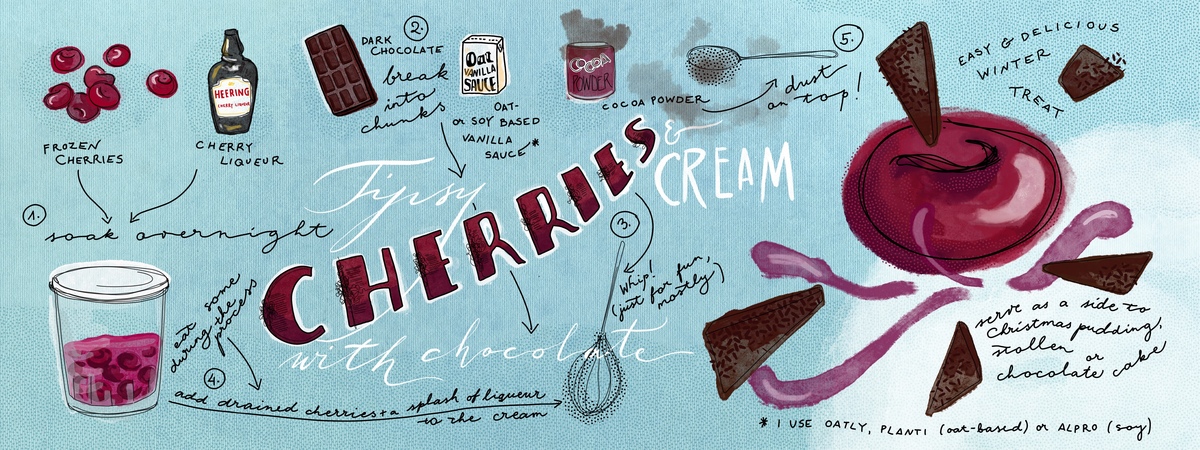 FROZEN
CHERRIES
HEERING
CHERRY LIQUEUR
CHERRY
LIQUEUR
1.
soak overnight
2.
DARK
CHOCOLATE
break
into
chunks
Oat
VANILLA
SAUCE
OAT-
OR SOY BASED
VANILLA
SAUCE*
COCOA
POWDER
COCOA POWDER
5.
dust
on top!
Tipsy
CHERRIES
& CREAM
with chocolate
3.
Whip!
(just for fun,
mostly)
eat some
during the
process
4.
add drained cherries + a splash of liqueur
to the cream
EASY & DELICIOUS
WINTER
TREAT
serve as a side to
Christmas pudding,
stollen or
chocolate cake
* I USE OATLY, PLANTI (oat-based) or ALPRO (soy)